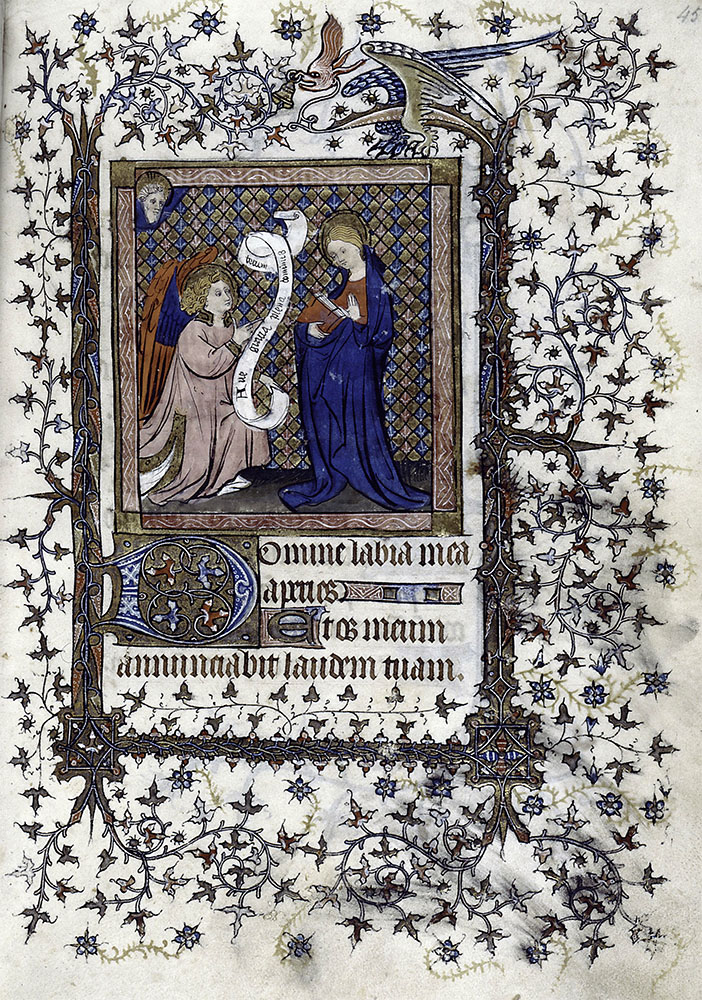 45
Aue gracia plena dominus
tecum
Domine labia mea
aperies
Et os meum
annunciabit laudem tuam.